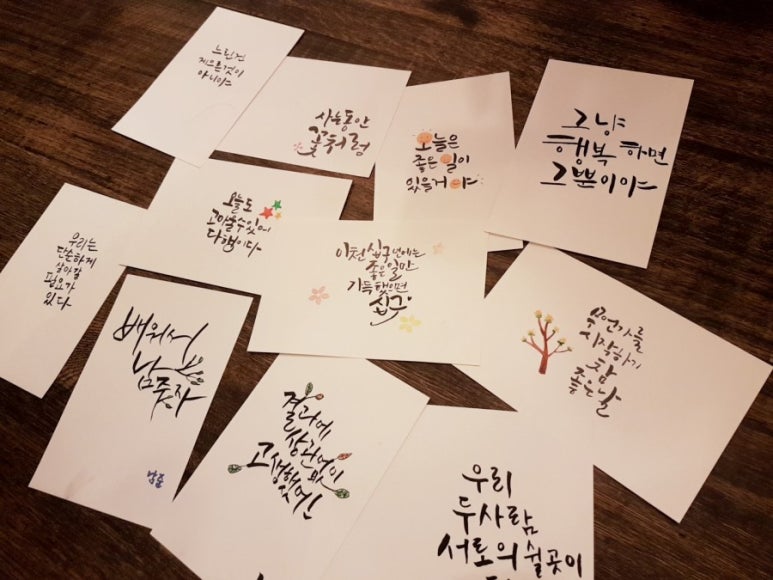 느린건
게으른것이
아니야
사는동안
꽃처럼
오늘은
좋은 일이
있을거야
그냥
행복 하면
그뿐이야
오늘도
고마울수있어
다행이다
우리는
단순하게
살아갈
필요가
있다
이천십구년에는
좋은일만
기득했으면
십구
배워서
남주자
남줌
무언가를
시작하기
참
좋은날
결과에
상관없이
고생했어!
우리
두사람
서로의 쉴곳이